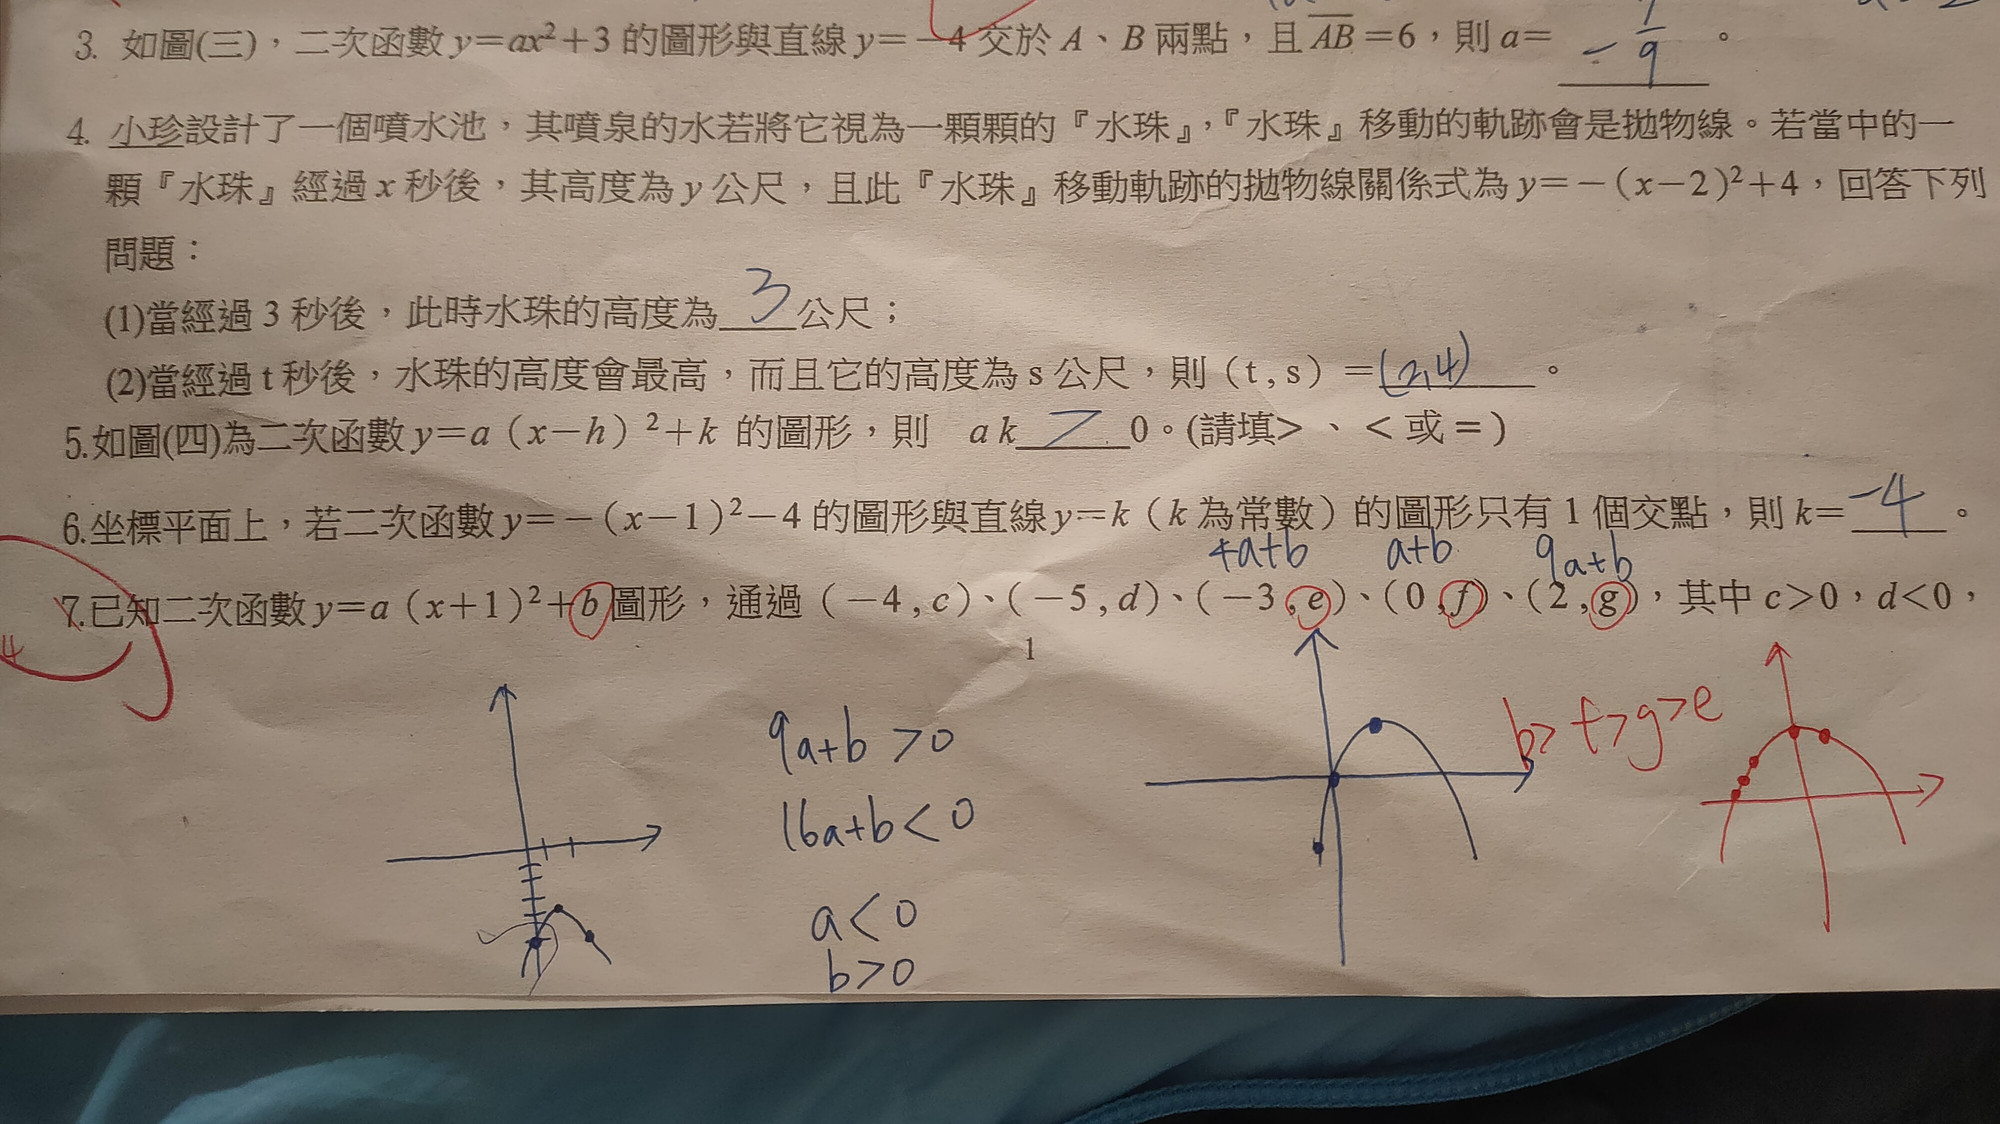 3. 如圖(三)，二次函數 y＝ax²＋3 的圖形與直線 y＝－4 交於 A、B 兩點，且 AB＝6，則 a＝ -7/9 。
4. 小珍設計了一個噴水池，其噴泉的水若將它視為一顆顆的『水珠』，『水珠』移動的軌跡會是拋物線。若當中的一
顆『水珠』經過 x 秒後，其高度為 y 公尺，且此『水珠』移動軌跡的拋物線關係式為 y＝－（x－2）²＋4，回答下列
問題：
(1)當經過 3 秒後，此時水珠的高度為 3 公尺；
(2)當經過 t 秒後，水珠的高度會最高，而且它的高度為 s 公尺，則（t , s）＝(2,4) 。
5.如圖(四)為二次函數 y＝a（x－h）²＋k 的圖形，則 a k > 0。(請填>、< 或 = )
6.坐標平面上，若二次函數 y＝－（x－1）²－4 的圖形與直線 y＝k（k 為常數）的圖形只有 1 個交點，則 k＝ -4 。
4a+b a+b 9a+b
7.已知二次函數 y＝a（x＋1）²＋b 圖形，通過（－4 , c）、（－5 , d）、（－3 , e）、（0 , f）、（2 , g），其中 c＞0，d＜0，
4
1
9a+b >0
16a+b<0
a<0
b>0
b>f>g>e